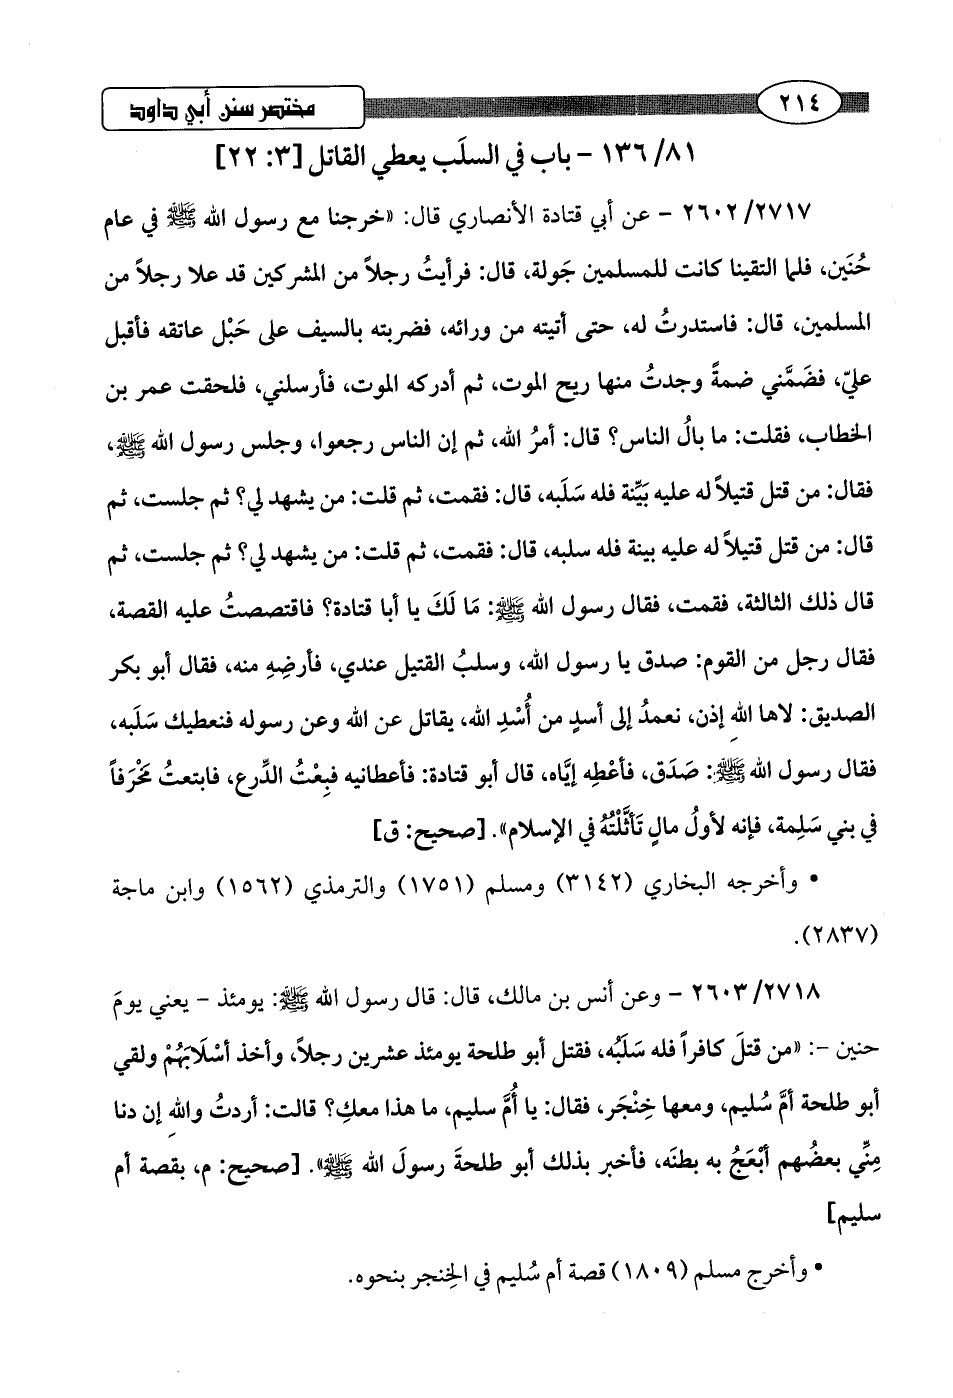 ٢١٤
مختصر سنن أبي داود
١٣٦/٨١ - باب في السلَب يعطي القاتل [٣: ٢٢]
٢٦٠٢/٢٧١٧ - عن أبي قتادة الأنصاري قال: «خرجنا مع رسول الله ﷺ في عام
حُنَين، فلما التقينا كانت للمسلمين جَولة، قال: فرأيتُ رجلاً من المشركين قد علا رجلاً من
المسلمين، قال: فاستدرتُ له، حتى أتيته من ورائه، فضربته بالسيف على حَبْل عاتقه فأقبل
عليّ، فضَمَّني ضمةً وجدتُ منها ريح الموت، ثم أدركه الموت، فأرسلني، فلحقت عمر بن
الخطاب، فقلت: ما بالُ الناس؟ قال: أمرُ الله، ثم إن الناس رجعوا، وجلس رسول الله ﷺ،
فقال: من قتل قتيلاً له عليه بَيِّنة فله سَلَبه، قال: فقمت، ثم قلت: من يشهد لي؟ ثم جلست، ثم
قال: من قتل قتيلاً له عليه بينة فله سلبه، قال: فقمت، ثم قلت: من يشهد لي؟ ثم جلست، ثم
قال ذلك الثالثة، فقمت، فقال رسول الله ﷺ: مَا لَكَ يا أبا قتادة؟ فاقتصصتُ عليه القصة،
فقال رجل من القوم: صدق يا رسول الله، وسلبُ القتيل عندي، فأرضِهِ منه، فقال أبو بكر
الصديق: لاها اللهِ إذن، نعمدُ إلى أسدٍ من أُسْدِ الله، يقاتل عن الله وعن رسوله فنعطيك سَلَبه،
فقال رسول الله ﷺ: صَدَق، فأعْطِه إيَّاه، قال أبو قتادة: فأعطانيه فبِعْتُ الدِّرع، فابتعتُ مَخْرَفاً
في بني سَلِمة، فإنه لأولُ مالٍ تَأثَّلْتُهُ في الإسلام». [صحيح: ق]
• وأخرجه البخاري (٣١٤٢) ومسلم (١٧٥١) والترمذي (١٥٦٢) وابن ماجة
(٢٨٣٧).
٢٦٠٣/٢٧١٨ - وعن أنس بن مالك، قال: قال رسول الله ﷺ: يومئذ - يعني يومَ
حنين -: «من قتلَ كافراً فله سَلَبُه، فقتل أبو طلحة يومئذ عشرين رجلاً، وأخذ أسْلَابَهُمْ ولقي
أبو طلحة أمَّ سُليم، ومعها خِنْجَر، فقال: يا أُمَّ سليم، ما هذا معكِ؟ قالت: أردتُ واللهِ إن دنا
مِنِّي بعضُهم أبْعَجُ به بطنَه، فأخبر بذلك أبو طلحةَ رسولَ الله ﷺ». [صحيح: م، بقصة أم
سليم]
• وأخرج مسلم (١٨٠٩) قصة أم سُليم في الخِنجر بنحوه.